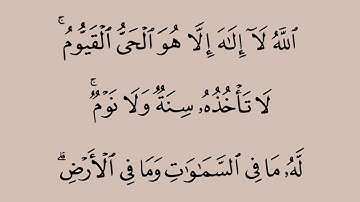 ٱللَّهُ لَآ إِلَـٰهَ إِلَّا هُوَ ٱلْحَىُّ ٱلْقَيُّومُ ۚ
لَا تَأْخُذُهُۥ سِنَةٌ وَلَا نَوْمٌ ۚ
لَّهُۥ مَا فِى ٱلسَّمَـٰوَٰتِ وَمَا فِى ٱلْأَرْضِ ۗ